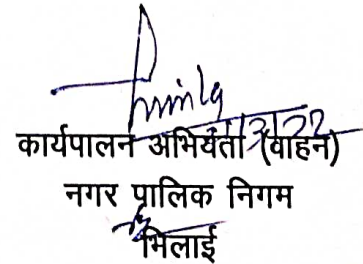 कार्यपालन अभियंता (वाहन)
नगर पालिक निगम
भिलाई